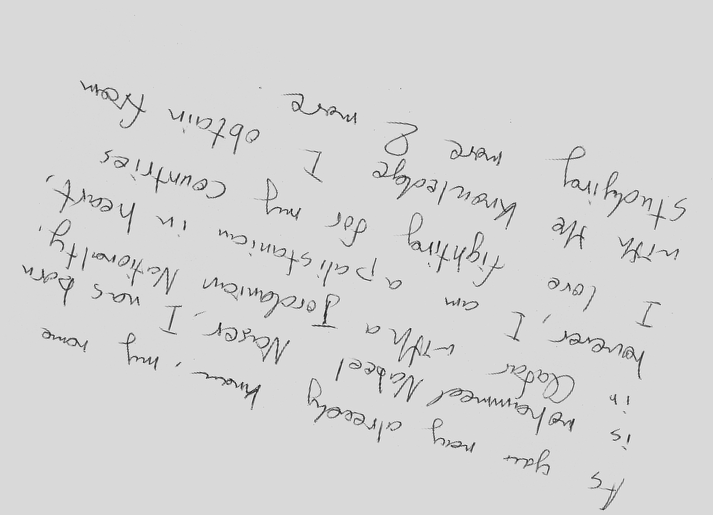 As you may already know, my name
is mohammed Nabeel Naser, I was born
in Qatar with a Jordanian Nationality,
however, I am a palistanian in heart,
I love fighting for my countries
with the knowledge I obtain from
studying more & more